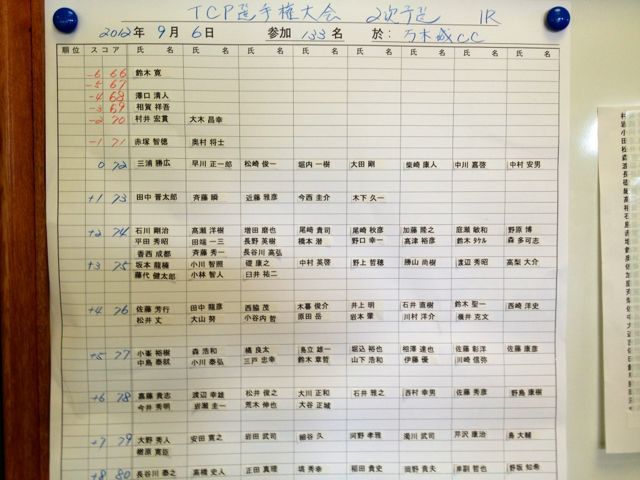 TCP選手権大会 2次予選 1R
2012年 9月 6日 参加 133名 於: 万木城CC
順位 スコア 氏名 氏名 氏名 氏名 氏名 氏名 氏名 氏名
-6 66 鈴木 寛
-5 67
-4 68 澤口 清人
-3 69 相賀 祥吾
-2 70 村井 宏貫 大木 昌幸
-1 71 赤塚 智徳 奥村 将士
0 72 三浦 勝広 早川 正一郎 松崎 俊一 堀内 一樹 大田 剛 柴崎 康人 中川 嘉啓 中村 安男
+1 73 田中 晋太郎 斉藤 瞬 近藤 雅彦 今西 圭介 木下 久一
+2 74 石川 剛治 高瀬 洋樹 増田 磨也 尾崎 貴司 尾崎 秋彦 加藤 隆之 庭瀬 敏和 野原 博
平田 秀昭 田端 一三 長野 英樹 橋本 潜 野口 幸一 高津 裕彦 鈴木 タケル 森 多可志
香西 成都 斉藤 秀一 長谷川 高弘
+3 75 坂本 龍楠 小川 智照 碓 康之 中村 英啓 野上 哲穂 勝山 尚樹 渡辺 秀昭 高梨 大介
藤代 健太郎 小林 智人 臼井 祐二
+4 76 佐藤 芳行 田中 龍彦 西脇 茂 木暮 俊介 井上 明 石井 直樹 鈴木 聖一 西崎 洋史
松井 丈 大山 努 小谷内 哲 原田 岳 岩本 肇 川村 洋介 櫃井 克文
+5 77 小峯 裕樹 森 浩和 橘 良太 島立 雄一 堀込 裕也 相澤 達也 佐藤 彰洋 佐藤 康彦
中島 泰紋 小川 泰弘 三戸 忠幸 鈴木 章哲 山下 浩和 伊藤 優 川崎 信弥
+6 78 嘉藤 貴志 渡辺 幸雄 松井 俊之 大川 正和 石井 雅之 西村 幸男 佐藤 秀彦 野島 康樹
今井 秀明 岩瀬 圭一 荒木 伸也 大谷 正城
+7 79 大野 秀人 安田 寛之 岩田 武司 細谷 久 河野 孝雅 濁川 武司 芹沢 康治 島 大輔
樹原 寛臣
+8 80 長谷川 泰之 高橋 史人 正田 真理 塙 秀幸 稲田 貴史 岡野 貴夫 岸副 哲也 野坂 知希